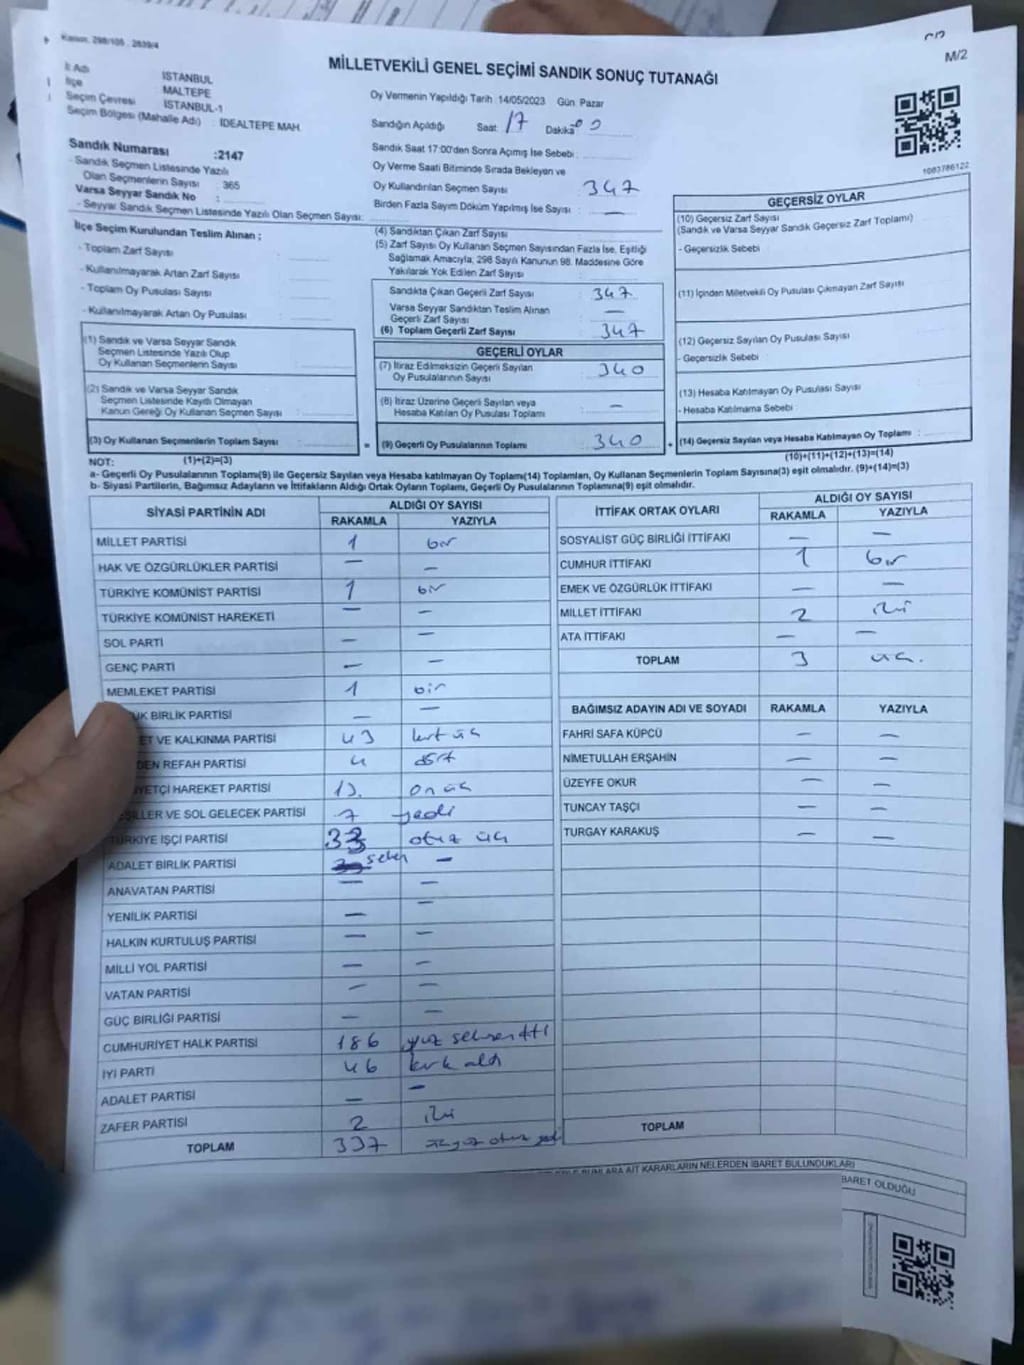 Kanun: 298/105 , 2839/4
M/2
MİLLETVEKİLİ GENEL SEÇİMİ SANDIK SONUÇ TUTANAĞI
İl Adı : İSTANBUL
İlçe : MALTEPE
Seçim Çevresi : İSTANBUL-1
Seçim Bölgesi (Mahalle Adı) : İDEALTEPE MAH.
Oy Vermenin Yapıldığı Tarih :14/05/2023 Gün: Pazar
Sandığın Açıldığı Saat: 17 Dakika: 00
Sandık Saat 17:00'den Sonra Açımış İse Sebebi :
Oy Verme Saati Bitiminde Sırada Bekleyen ve
Oy Kullandırılan Seçmen Sayısı 347
Birden Fazla Sayım Döküm Yapılmış İse Sayısı : —
1083786122
Sandık Numarası :2147
- Sandık Seçmen Listesinde Yazılı
Olan Seçmenlerin Sayısı : 365
Varsa Seyyar Sandık No :
- Seyyar Sandık Seçmen Listesinde Yazılı Olan Seçmen Sayısı:
İlçe Seçim Kurulundan Teslim Alınan ;
- Toplam Zarf Sayısı :
- Kullanılmayarak Artan Zarf Sayısı
- Toplam Oy Pusulası Sayısı :
- Kullanılmayarak Artan Oy Pusulası :
(1) Sandık ve Varsa Seyyar Sandık
Seçmen Listesinde Yazılı Olup
Oy Kullanan Seçmenlerin Sayısı :
(2) Sandık ve Varsa Seyyar Sandık
Seçmen Listesinde Kayıtlı Olmayan
Kanun Gereği Oy Kullanan Seçmen Sayısı :
(3) Oy Kullanan Seçmenlerin Toplam Sayısı :
(4) Sandıktan Çıkan Zarf Sayısı :
(5) Zarf Sayısı Oy Kullanan Seçmen Sayısından Fazla İse, Eşitliği
Sağlamak Amacıyla; 298 Sayılı Kanunun 98. Maddesine Göre
Yakılarak Yok Edilen Zarf Sayısı :
Sandıkta Çıkan Geçerli Zarf Sayısı : 347
Varsa Seyyar Sandıktan Teslim Alınan
Geçerli Zarf Sayısı : —
(6) Toplam Geçerli Zarf Sayısı : 347
GEÇERLİ OYLAR
(7) İtiraz Edilmeksizin Geçerli Sayılan
Oy Pusulalarının Sayısı : 340
(8) İtiraz Üzerine Geçerli Sayılan veya
Hesaba Katılan Oy Pusulası Toplamı : —
= (9) Geçerli Oy Pusulalarının Toplamı : 340
GEÇERSİZ OYLAR
(10) Geçersiz Zarf Sayısı :
(Sandık ve Varsa Seyyar Sandık Geçersiz Zarf Toplamı)
- Geçersizlik Sebebi :
(11) İçinden Milletvekili Oy Pusulası Çıkmayan Zarf Sayısı :
(12) Geçersiz Sayılan Oy Pusulası Sayısı :
- Geçersizlik Sebebi :
(13) Hesaba Katılmayan Oy Pusulası Sayısı :
- Hesaba Katılmama Sebebi :
+ (14) Geçersiz Sayılan veya Hesaba Katılmayan Oy Toplamı :
NOT: (1)+(2)=(3) (10)+(11)+(12)+(13)=(14)
a- Geçerli Oy Pusulalarının Toplamı(9) ile Geçersiz Sayılan veya Hesaba katılmayan Oy Toplamı(14) Toplamları, Oy Kullanan Seçmenlerin Toplam Sayısına(3) eşit olmalıdır. (9)+(14)=(3)
b- Siyasi Partilerin, Bağımsız Adayların ve İttifakların Aldığı Ortak Oyların Toplamı, Geçerli Oy Pusulalarının Toplamına(9) eşit olmalıdır.
SİYASİ PARTİNİN ADI ALDIĞI OY SAYISI
RAKAMLA YAZIYLA
MİLLET PARTİSİ 1 bir
HAK VE ÖZGÜRLÜKLER PARTİSİ — —
TÜRKİYE KOMÜNİST PARTİSİ 1 bir
TÜRKİYE KOMÜNİST HAREKETİ — —
SOL PARTİ — —
GENÇ PARTİ — —
MEMLEKET PARTİSİ 1 bir
BİRLİK PARTİSİ — —
ET VE KALKINMA PARTİSİ 43 kırk üç
DEN REFAH PARTİSİ 4 dört
YETÇİ HAREKET PARTİSİ 13 on üç
ŞİLLER VE SOL GELECEK PARTİSİ 7 yedi
TÜRKİYE İŞÇİ PARTİSİ 33 otuz üç
ADALET BİRLİK PARTİSİ —
ANAVATAN PARTİSİ — —
YENİLİK PARTİSİ — —
HALKIN KURTULUŞ PARTİSİ — —
MİLLİ YOL PARTİSİ — —
VATAN PARTİSİ — —
GÜÇ BİRLİĞİ PARTİSİ — —
CUMHURİYET HALK PARTİSİ 186 yüz seksen altı
İYİ PARTİ 46 kırk altı
ADALET PARTİSİ — —
ZAFER PARTİSİ 2 iki
TOPLAM 337 üçyüz otuz yedi
İTTİFAK ORTAK OYLARI ALDIĞI OY SAYISI
RAKAMLA YAZIYLA
SOSYALİST GÜÇ BİRLİĞİ İTTİFAKI — —
CUMHUR İTTİFAKI 1 bir
EMEK VE ÖZGÜRLÜK İTTİFAKI — —
MİLLET İTTİFAKI 2 iki
ATA İTTİFAKI — —
TOPLAM 3 üç.
BAĞIMSIZ ADAYIN ADI VE SOYADI RAKAMLA YAZIYLA
FAHRİ SAFA KÜPCÜ — —
NİMETULLAH ERŞAHİN — —
ÜZEYFE OKUR — —
TUNCAY TAŞÇI — —
TURGAY KARAKUŞ — —
TOPLAM
BUNLARA AİT KARARLARIN NELERDEN İBARET BULUNDUKLARI
İBARET OLDUĞU